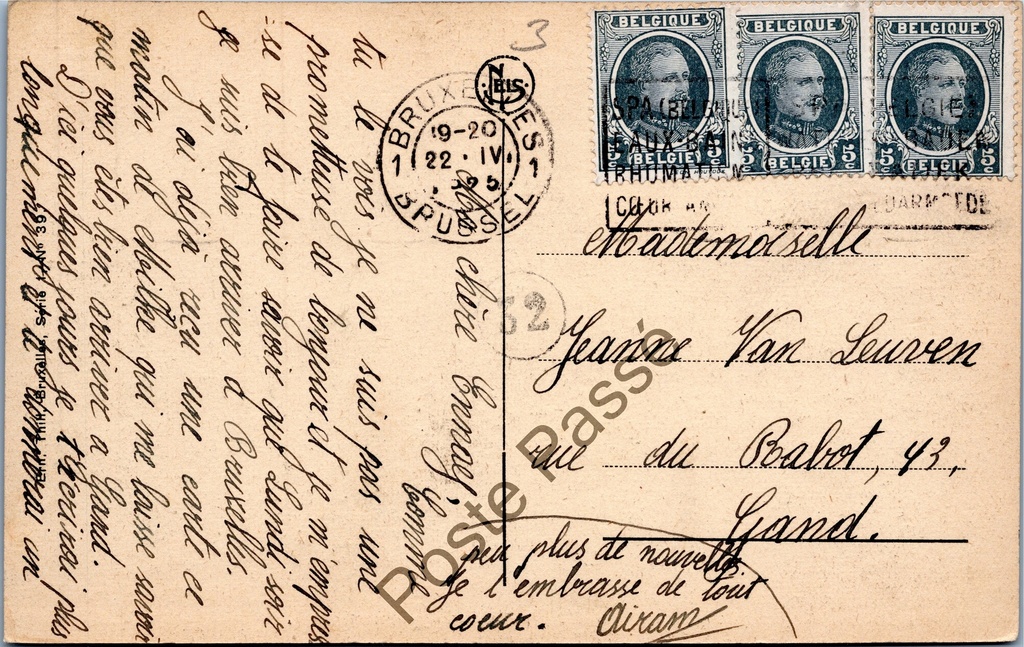 3
BELGIQUE
BELGIQUE
BELGIQUE
BELGIË 5c
5c BELGIE 5c
5c BELGIE 5c
SPA (BELGIQUE
EAUX-BAINS
RHUMATISM
CŒUR AN
NELS
BRUXELLES
19-20
1 22 · IV. 1
BRUSSEL
32
Ma chère Ennaej,
Comme
tu le vois je ne suis pas une
prometteuse de bonjour et je m'empres
-se de te faire savoir que Lundi soir
je suis bien arrivée à Bruxelles.
J'ai déjà reçu une carte ce
matin de Milke qui me laisse savoir
que vous êtes bien arrivées à Gand.
D'ici quelques jours je t'écrirai plus
longuement et te donnerai un
peu plus de nouvelles.
Je t'embrasse de tout
coeur. Airam
Mademoiselle
Jeanne Van Leuven
rue du Rabot, 43,
Gand.
Ern. Thill, Bruxelles, Série 1, N° 39
Poste Passé